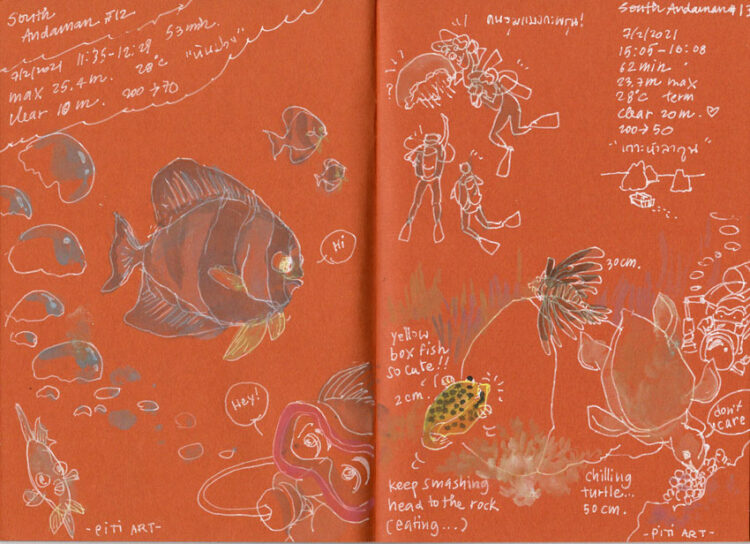 South
Andaman #12
7/2/2021 11:35-12:28 53min.
max 25.4m. 28°c "หินแปปิน"
clear 10m. 200→70
Hi
Hey!
-PiTi ART-
South Andaman #13
7/2/2021
15:05-16:08
62min
23.7m max
28°c term
clear 20m. ♡
200→50
30cm.
yellow
box fish
so cute!!
2cm.
keep smashing
head to the rock
(eating...)
don't
care
chilling
turtle...
50cm.
-PiTi ART-